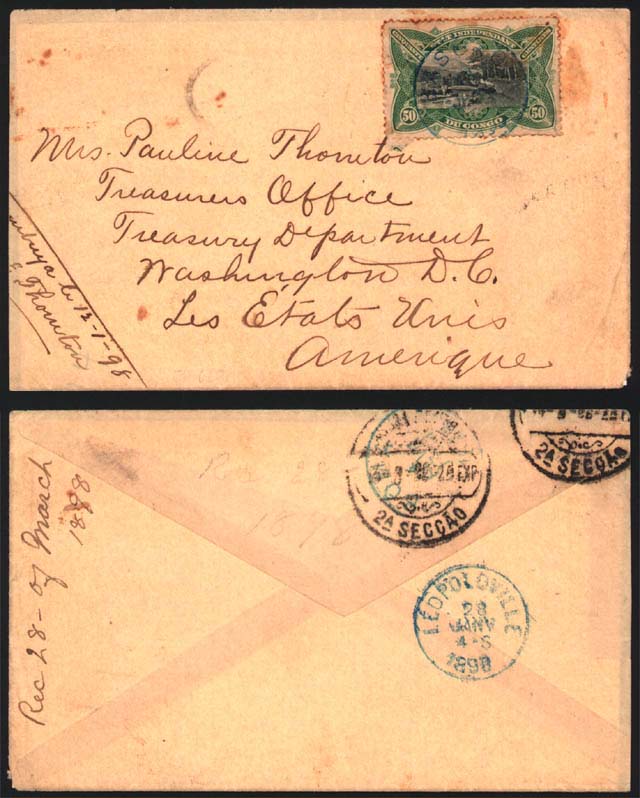 ETAT INDEPENDANT
50 50
DU CONGO
Mrs. Pauline Thornton
Treasurers Office
Treasury Department
Washington D.C.
Les États Unis
Amerique
le 12-1-98
Thornton
Rec 28- of March
1898
Rec 28
1898
2ª SECÇÃO
2ª SECÇÃO
LÉOPOLDVILLE
28
JANV
4-S
1898